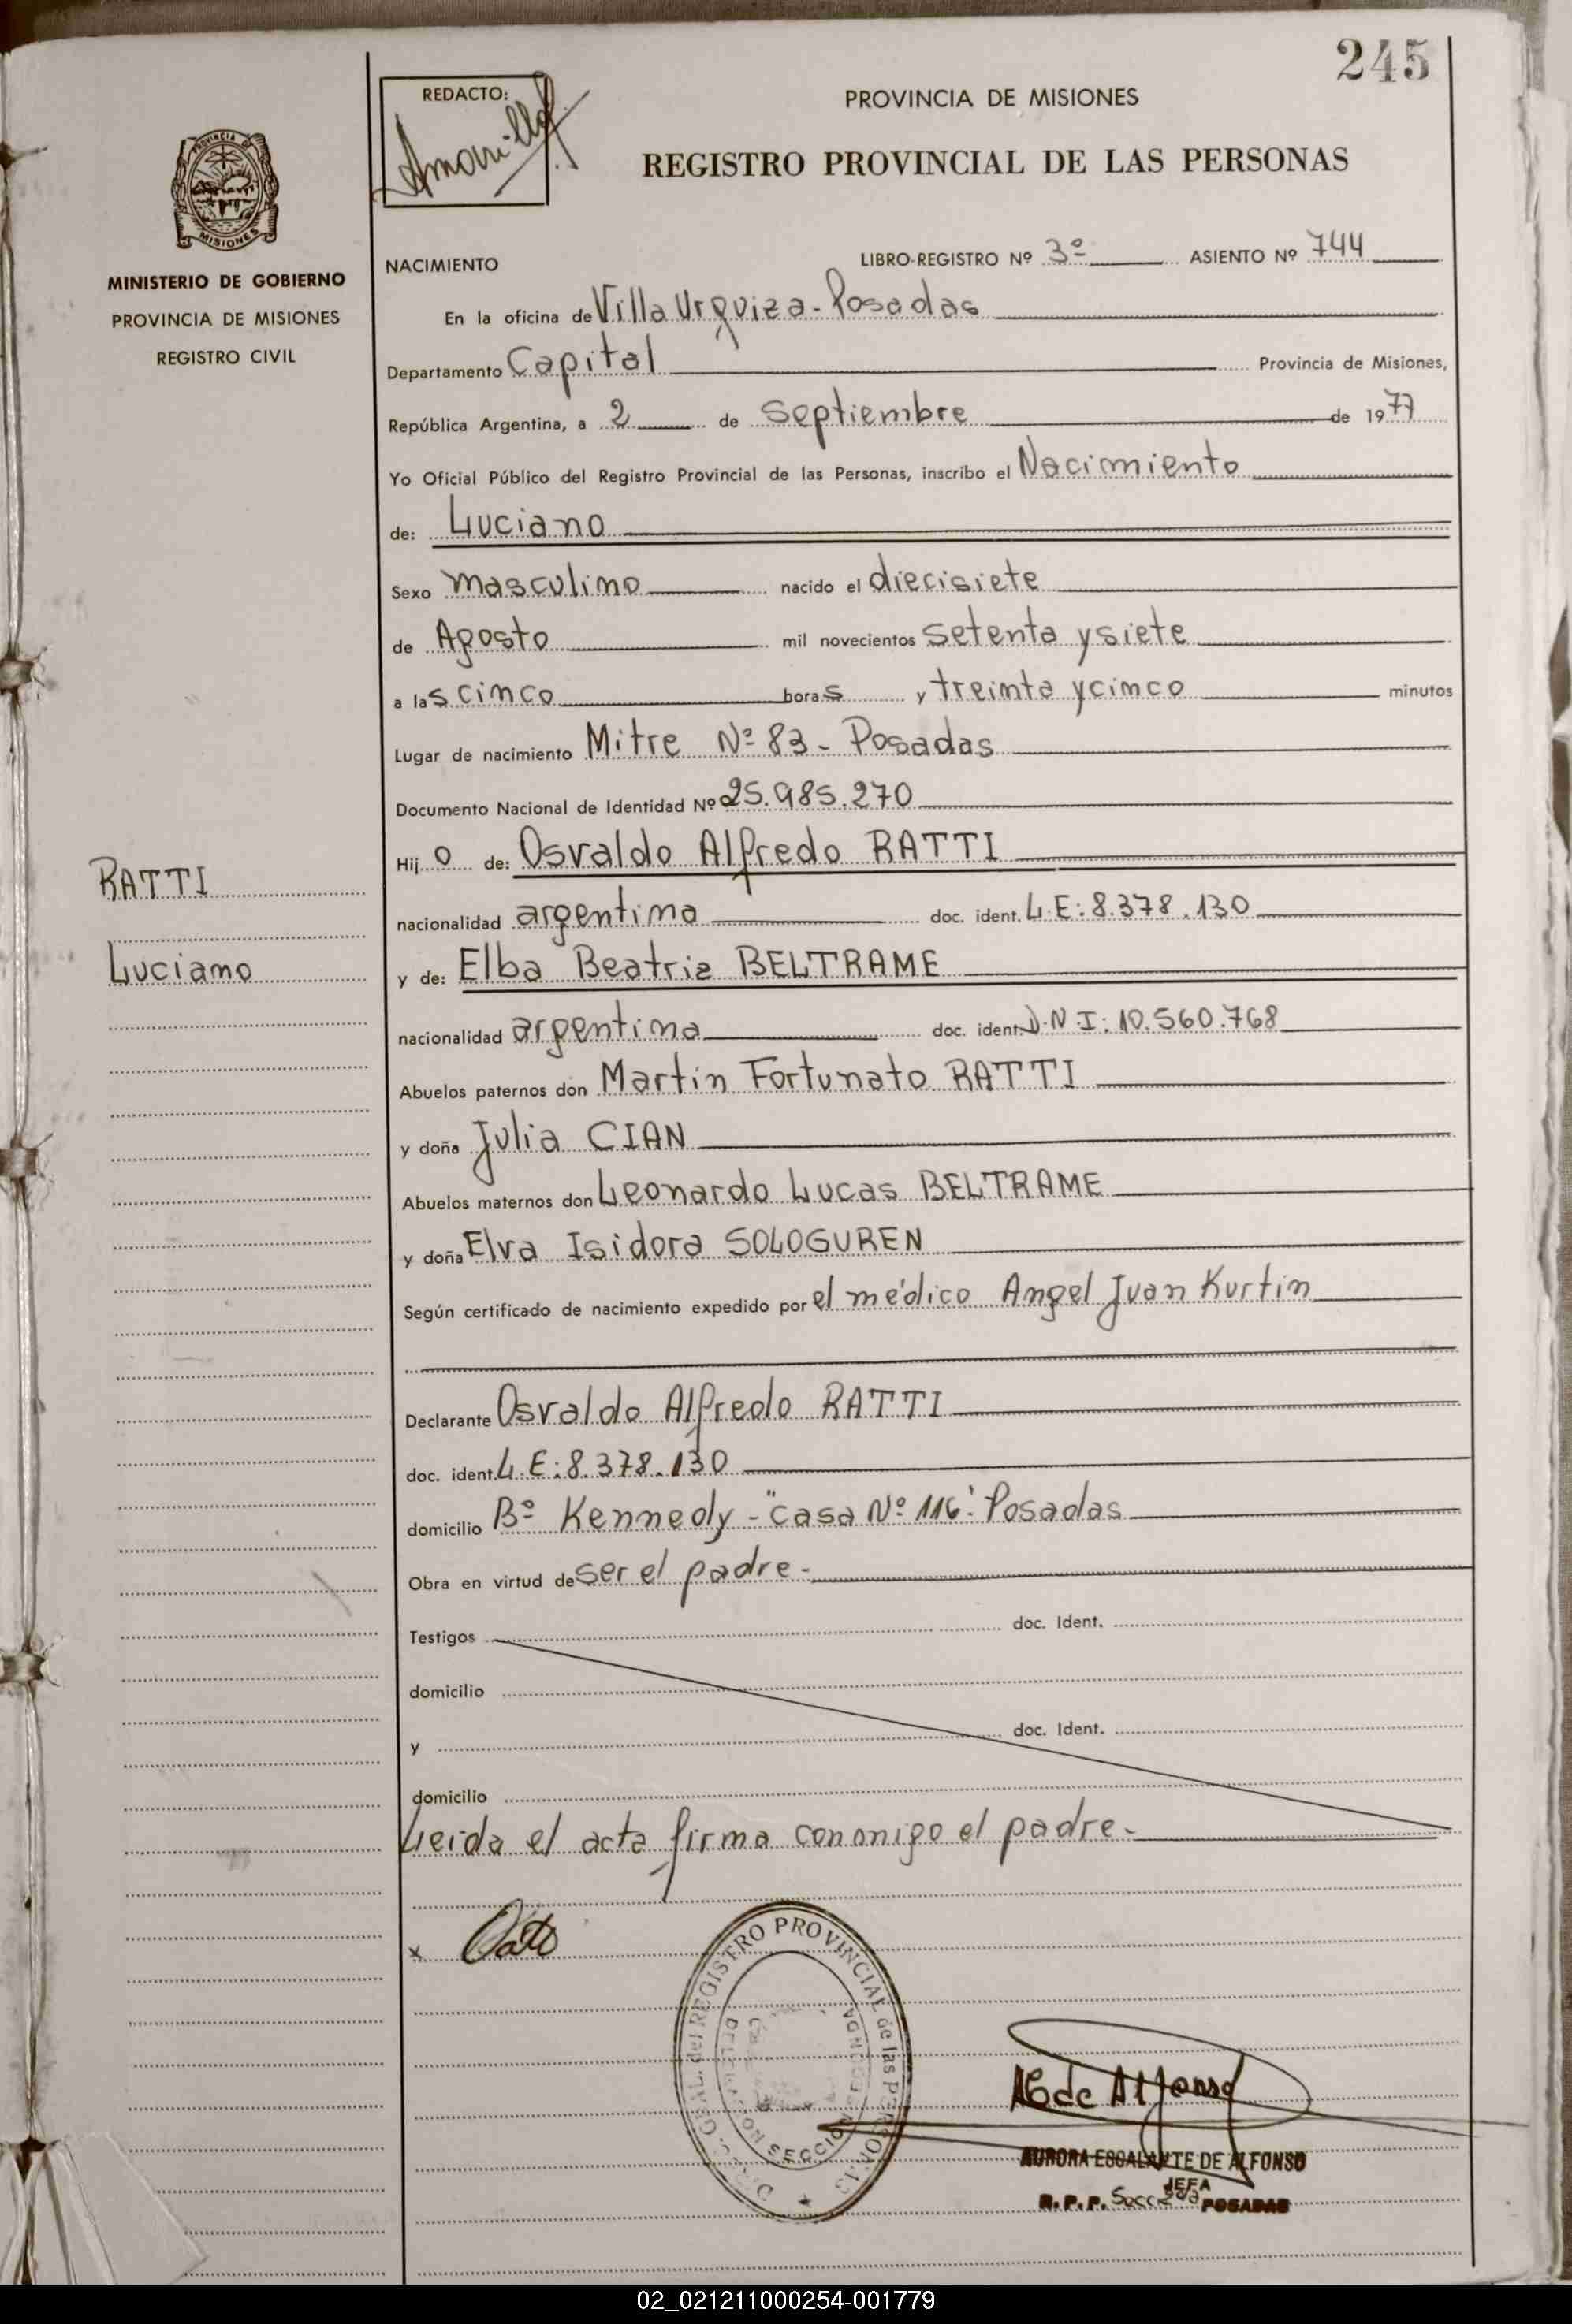 245
REDACTO:
PROVINCIA DE MISIONES
REGISTRO PROVINCIAL DE LAS PERSONAS
PROVINCIA DE
MISIONES
MINISTERIO DE GOBIERNO
PROVINCIA DE MISIONES
REGISTRO CIVIL
NACIMIENTO LIBRO-REGISTRO Nº 3º ASIENTO Nº 744
En la oficina de Villa Urquiza - Posadas
Departamento Capital Provincia de Misiones,
República Argentina, a 2 de Septiembre de 1977
Yo Oficial Público del Registro Provincial de las Personas, inscribo el Nacimiento
de: Luciano
Sexo masculino nacido el diecisiete
de Agosto mil novecientos setenta y siete
a las cinco horas y treinta y cinco minutos
Lugar de nacimiento Mitre Nº 83 - Posadas
Documento Nacional de Identidad Nº 25.985.270
Hijo de: Osvaldo Alfredo RATTI
RATTI
nacionalidad argentina doc. ident. L.E: 8.378.130
Luciano
y de: Elba Beatriz BELTRAME
nacionalidad argentina doc. ident. D.N.I: 10.560.768
Abuelos paternos don Martín Fortunato RATTI
y doña Julia CIAN
Abuelos maternos don Leonardo Lucas BELTRAME
y doña Elva Isidora SOLOGUREN
Según certificado de nacimiento expedido por el médico Angel Juan Kurtin
Declarante Osvaldo Alfredo RATTI
doc. ident. L.E: 8.378.130
domicilio Bº Kennedy - "Casa Nº 116" Posadas
Obra en virtud de ser el padre -
Testigos doc. Ident.
domicilio
y doc. Ident.
domicilio
Leida el acta firma conmigo el padre -
x
GRAL. del REGISTRO PROVINCIAL de las PERSONAS
SECCION
A E de Alfonso
AURORA ESCALANTE DE ALFONSO
JEFA
R.P.P. Secc 2da POSADAS
02_021211000254-001779